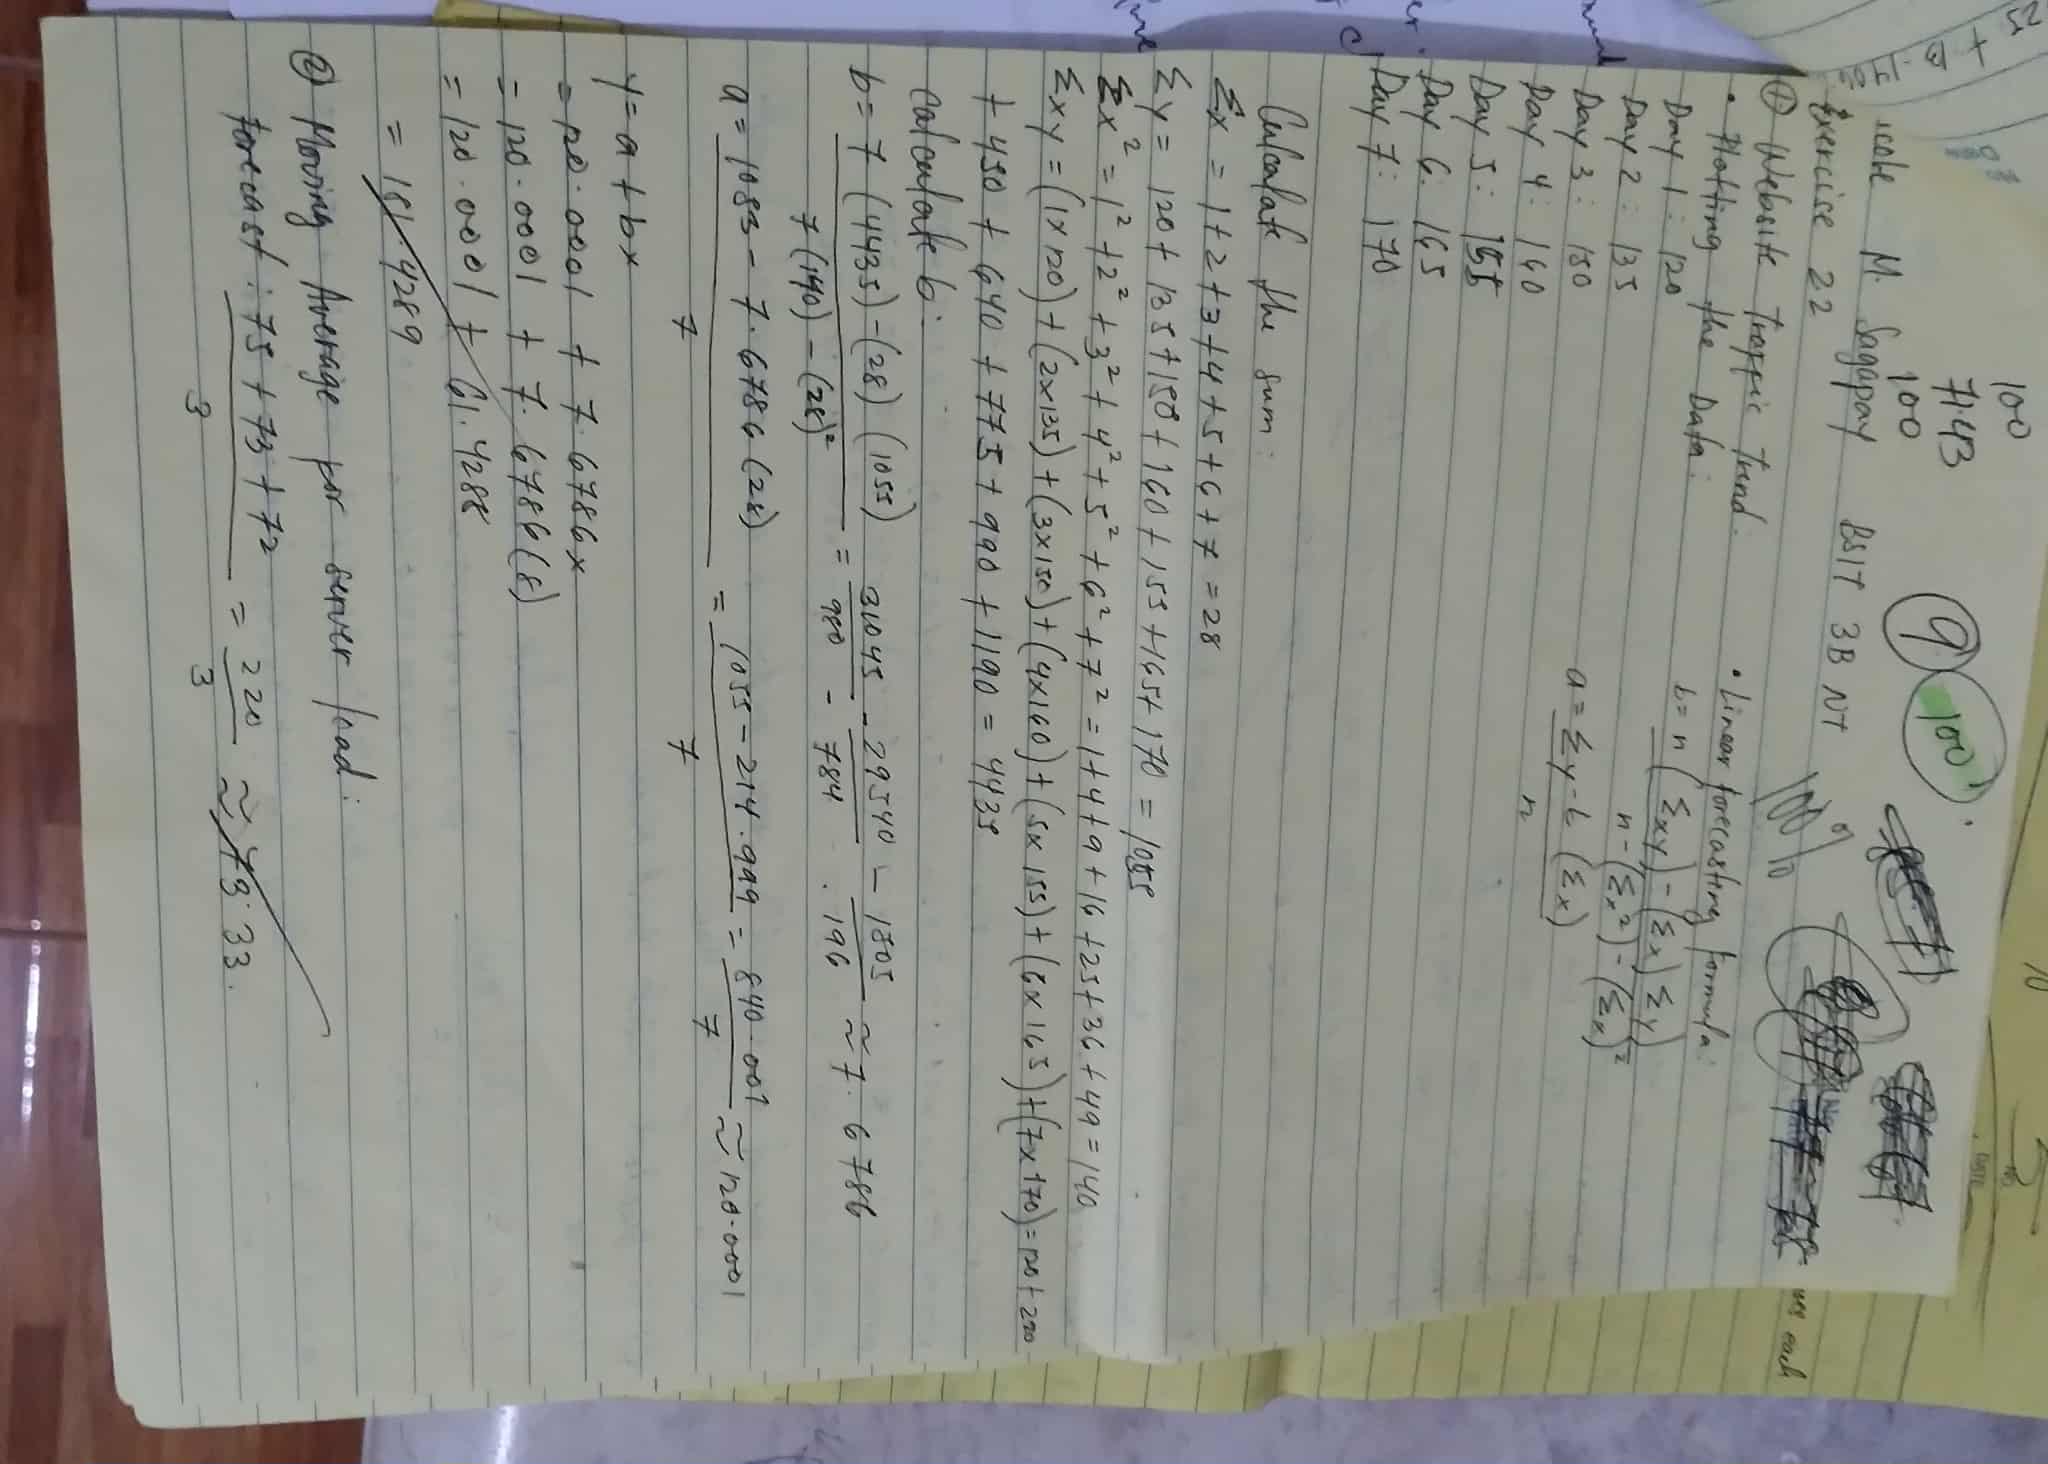 100
71.43
100
9
100
M. Sagapay BSIT 3B NT
Exercise 22
100%
① Website Traffic Trend.
• Plotting the Data:
Day 1: 120
Day 2: 135
Day 3: 150
Day 4: 160
Day 5: 155
Day 6: 165
Day 7: 170
• Linear forecasting formula:
b = n (Σxy) - (Σx) Σy)
n - (Σx²) - (Σx)²
a = Σy - b (Σx)
n
Calculate the sum:
Σx = 1+2+3+4+5+6+7 = 28
Σy = 120 + 135 + 150 + 160 + 155 + 165 + 170 = 1055
Σx² = 1² + 2² + 3² + 4² + 5² + 6² + 7² = 1+4+9+16+25+36+49 = 140
Σxy = (1x120) + (2x135) + (3x150) + (4x160) + (5x155) + (6x165) + (7x170) = 120 + 270
+ 450 + 640 + 775 + 990 + 1190 = 4435
Calculate b:
b = 7 (4435) - (28) (1055) 31045 - 29540 - 1505 ≈ 7.6786
7 (140) - (28)² = 980 - 784 . 196
a = 1055 - 7.6786 (28) = 1055 - 214.999 = 840.001 ≈ 120.0001
7 7 7
y = a + bx
= 120.0001 + 7.6786x
= 120.0001 + 7.6786(8)
= 120.0001 + 61.4288
= 181.4289
② Moving Average for server load:
forecast: 75 + 73 + 72 = 220 ≈ 73.33.
3 3